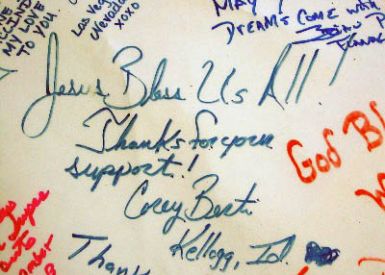 MY LOVE
TO YOU
Las Vegas
Nevada
XOXO
MAY
DREAMS COME with
Jesus Bless Us All!
Thanks for your
support!
GOD BL
Corey
Kellogg, Id.
Thank